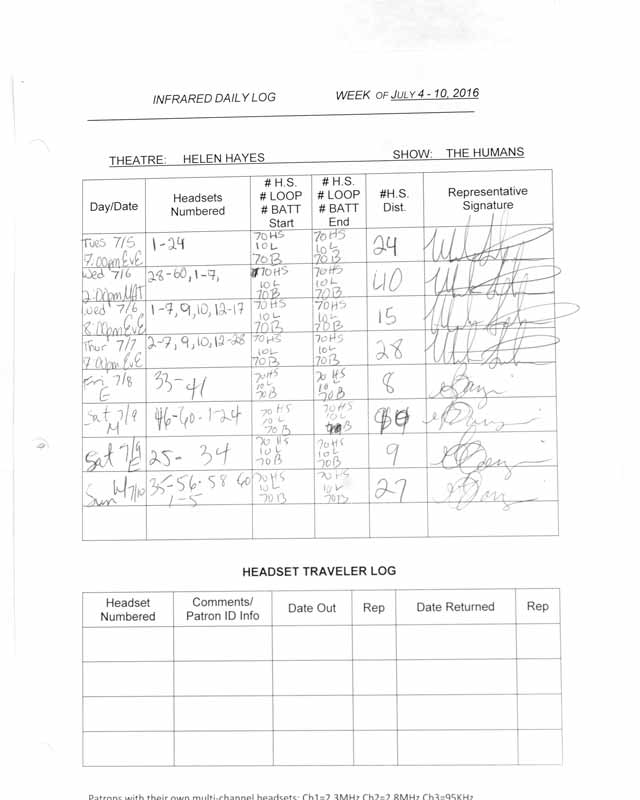 INFRARED DAILY LOG WEEK OF JULY 4 - 10, 2016
THEATRE: HELEN HAYES SHOW: THE HUMANS
Day/Date Headsets Numbered # H.S. # LOOP # BATT Start # H.S. # LOOP # BATT End #H.S. Dist. Representative Signature
Tues 7/5 7:00pm EVE 1-24 70HS 10L 70B 70HS 10L 70B 24
Wed 7/6 2:00pm MAT 28-60, 1-7, 70HS 10L 70B 70HS 10L 70B 40
Wed 7/6 8:00pm EVE 1-7, 9, 10, 12-17 70HS 10L 70B 70HS 10L 70B 15
Thur 7/7 7:00pm EVE 2-7, 9, 10, 12-28 70HS 10L 70B 70HS 10L 70B 28
Fri 7/8 E 33-41 70HS 10L 70B 70HS 10L 70B 8
Sat 7/9 M 46-60-1-24 70HS 10L 70B 70HS 10L
Sat 7/9 E 25-34 70HS 10L 70B 70HS 10L 70B 9
Sun 7/10 35-56-58 60 1-5 70HS 10L 70B 70HS 10L 70B 27
HEADSET TRAVELER LOG
Headset Numbered Comments/ Patron ID Info Date Out Rep Date Returned Rep
Patrons with their own multi-channel headsets: Ch1=2.3MHz Ch2=2.8MHz Ch3=95KHz